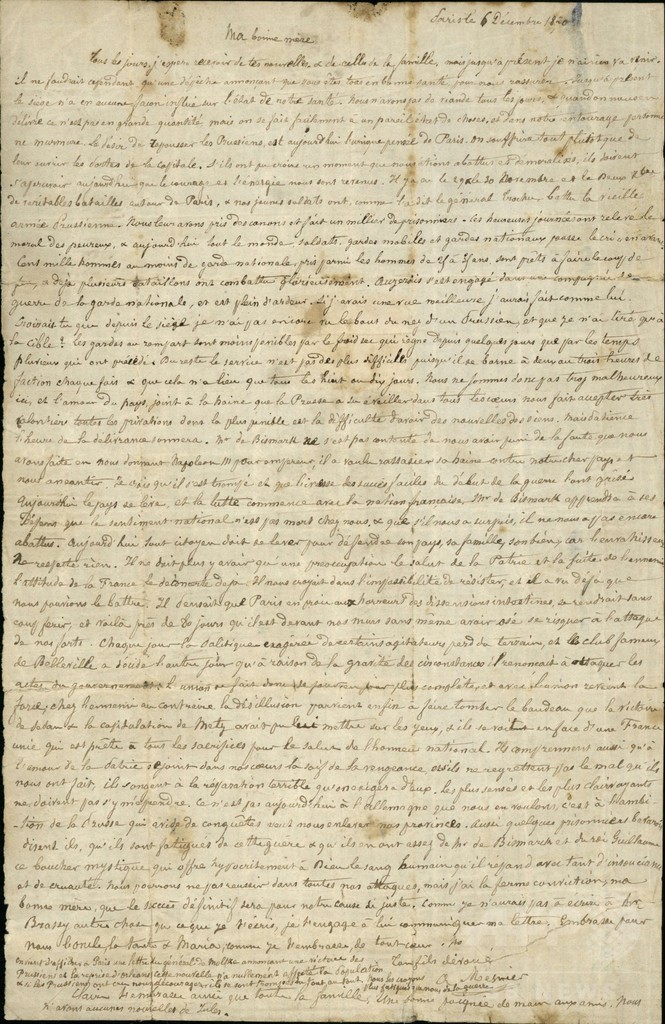 Paris le 6 Décembre 1870
Ma bonne mère
Tous les jours, j'espère recevoir de tes nouvelles & de celles de la famille, mais jusqu'à présent je n'ai rien vu venir.
il ne faudrait cependant qu'une dépêche annonçant que vous êtes tous en bonne santé pour nous rassurer. Jusqu'à présent
le siège n'a en aucune façon influé sur l'état de notre santé. Nous n'avons pas de viande tous les jours, & quand on nous en
délivre ce n'est pas en grande quantité mais on se fait facilement à un pareil état de choses, et dans notre entourage personne
ne murmure. Le désir de repousser les Prussiens, est aujourd'hui l'unique pensée de Paris. on souffrira tout plutôt que de
leur ouvrir les portes de la capitale. S'ils ont pu croire un moment que nous étions abattus et démoralisés, ils doivent
s'apercevoir aujourd'hui que le courage et l'énergie nous sont revenus. Il y a eu le 29 & le 30 Novembre et le Deux Xbre
de véritables batailles autour de Paris, & nos jeunes soldats ont, comme l'a dit le général Trochu battu la vieille
armée Prussienne. Nous leur avons pris des canons et fait un millier de prisonniers. Ces heureuses journées ont relevé le
moral des peureux, & aujourd'hui tout le monde soldats, gardes mobiles et gardes nationaux pousse le cri, en avant
Cent mille hommes au moins de garde nationale, pris parmi les hommes de 25 à 35 ans, sont prêts à faire le coup de
feu, & déjà plusieurs bataillons ont combattu glorieusement. s'est engagé dans une compagnie de
guerre de la garde nationale, et est plein d'ardeur. Si j'avais une vue meilleure, j'aurais fait comme lui.
Croirais tu que depuis le siège je n'ai pas encore vu le bout du nez d'un Prussien, et que je n'ai tiré qu'à
la cible? Les gardes au rempart sont moins pénibles par le froid sec qui règne depuis quelques jours que par les temps
pluvieux qui ont précédé. Du reste le service n'est pas des plus difficiles puisqu'il se borne à deux ou trois heures de
faction chaque fois & que cela n'a lieu que tous les huit ou dix jours. Nous ne sommes donc pas trop malheureux
ici, et l'amour du pays, joint à la haine que la Prusse a su éveiller dans tous les cœurs nous fait accepter très
volontiers toutes les privations dont la plus pénible est la difficulté d'avoir des nouvelles des siens. Mais patience
l'heure de la délivrance sonnera. Mr de Bismark ne s'est pas contenté de nous avoir puni de la faute que nous
avons faite en nous donnant Napoléon III pour empereur, il a voulu rassasier sa haine contre notre cher pays et
nous anéantir. Je crois qu'il s'est trompé et que l'ivresse des succès faciles du début de la guerre l'ont grisé
Aujourd'hui le pays se lève, et la lutte commence avec la nation française. Mr de Bismark apprendra à ses
dépens que le sentiment national n'est pas mort chez nous, & que s'il nous a surpris, il ne nous a pas encore
abattus. Aujourd'hui tout citoyen doit se lever pour défendre son pays, sa famille, son bien, car l'envahisseur
ne respecte rien. Il ne doit plus y avoir que une préoccupation le salut de la Patrie et la fuite de l'ennemi
l'attitude de la France le déconcerte déjà. Il nous croyait dans l'impossibilité de résister, et il a vu déjà que
nous pouvions le battre. Il pensait que Paris en proie aux horreurs des dissensions intestines, se rendrait sans
coup férir, et voilà près de 80 jours qu'il est devant nos murs sans même avoir osé se risquer à l'attaque
de nos forts. Chaque jour la Politique exagérée de certains agitateurs, perd du terrain, et le club fameux
de Belleville a décidé l'autre jour qu'à raison de la gravité des circonstances il renonçait à attaquer les
actes du gouvernement. L'union se fait donc de jour en jour plus complète, et avec l'union revient la
force; chez l'ennemi au contraire la désillusion parvient enfin à faire tomber le bandeau que la victoire
de Sedan & la capitulation de Metz avait pu lui mettre sur les yeux, & ils se voient en face d'une France
unie qui est prête à tous les sacrifices pour le salut de l'honneur national. Ils comprennent aussi qu'à
l'amour de la Patrie se joint dans nos cœurs la soif de la vengeance, et s'ils ne regrettent pas le mal qu'ils
nous ont fait, ils songent à la réparation terrible qu'on exigera d'eux. Les plus sensés et les plus clairvoyants
ne doivent pas s'y méprendre. Ce n'est pas aujourd'hui à l'Allemagne que nous en voulons, c'est à l'ambi-
tion de la Prusse qui avide de conquêtes veut nous enlever nos provinces. Aussi quelques prisonniers bavarois
disent ils, qu'ils sont fatigués de cette guerre & qu'ils en ont assez de Mr de Bismarck et du roi Guillaume
ce boucher mystique, qui offre hypocritement à Dieu le sang humain qu'il répand avec tant d'insouciance
et de cruauté. Nous pourrons ne pas réussir dans toutes nos attaques, mais j'ai la ferme conviction, ma
bonne mère, que le succès définitif sera pour notre cause si juste. Comme je n'aurais pas à écrire à
Brassy autre chose que ce que je t'écris, je t'engage à lui communiquer ma lettre. Embrasse pour
nous l'oncle, la tante & Maria, comme je t'embrasse, de tout cœur.
on vient d'afficher à Paris une lettre du général de Moltke annonçant une victoire des
Prussiens et la reprise d'Orléans, cette nouvelle n'a nullement affecté la population
Ton fils dévoué
Mesnier
t'embrasse ainsi que toute la famille. Une bonne poignée de main aux amis. Nous
n'avons aucunes nouvelles de Jules.